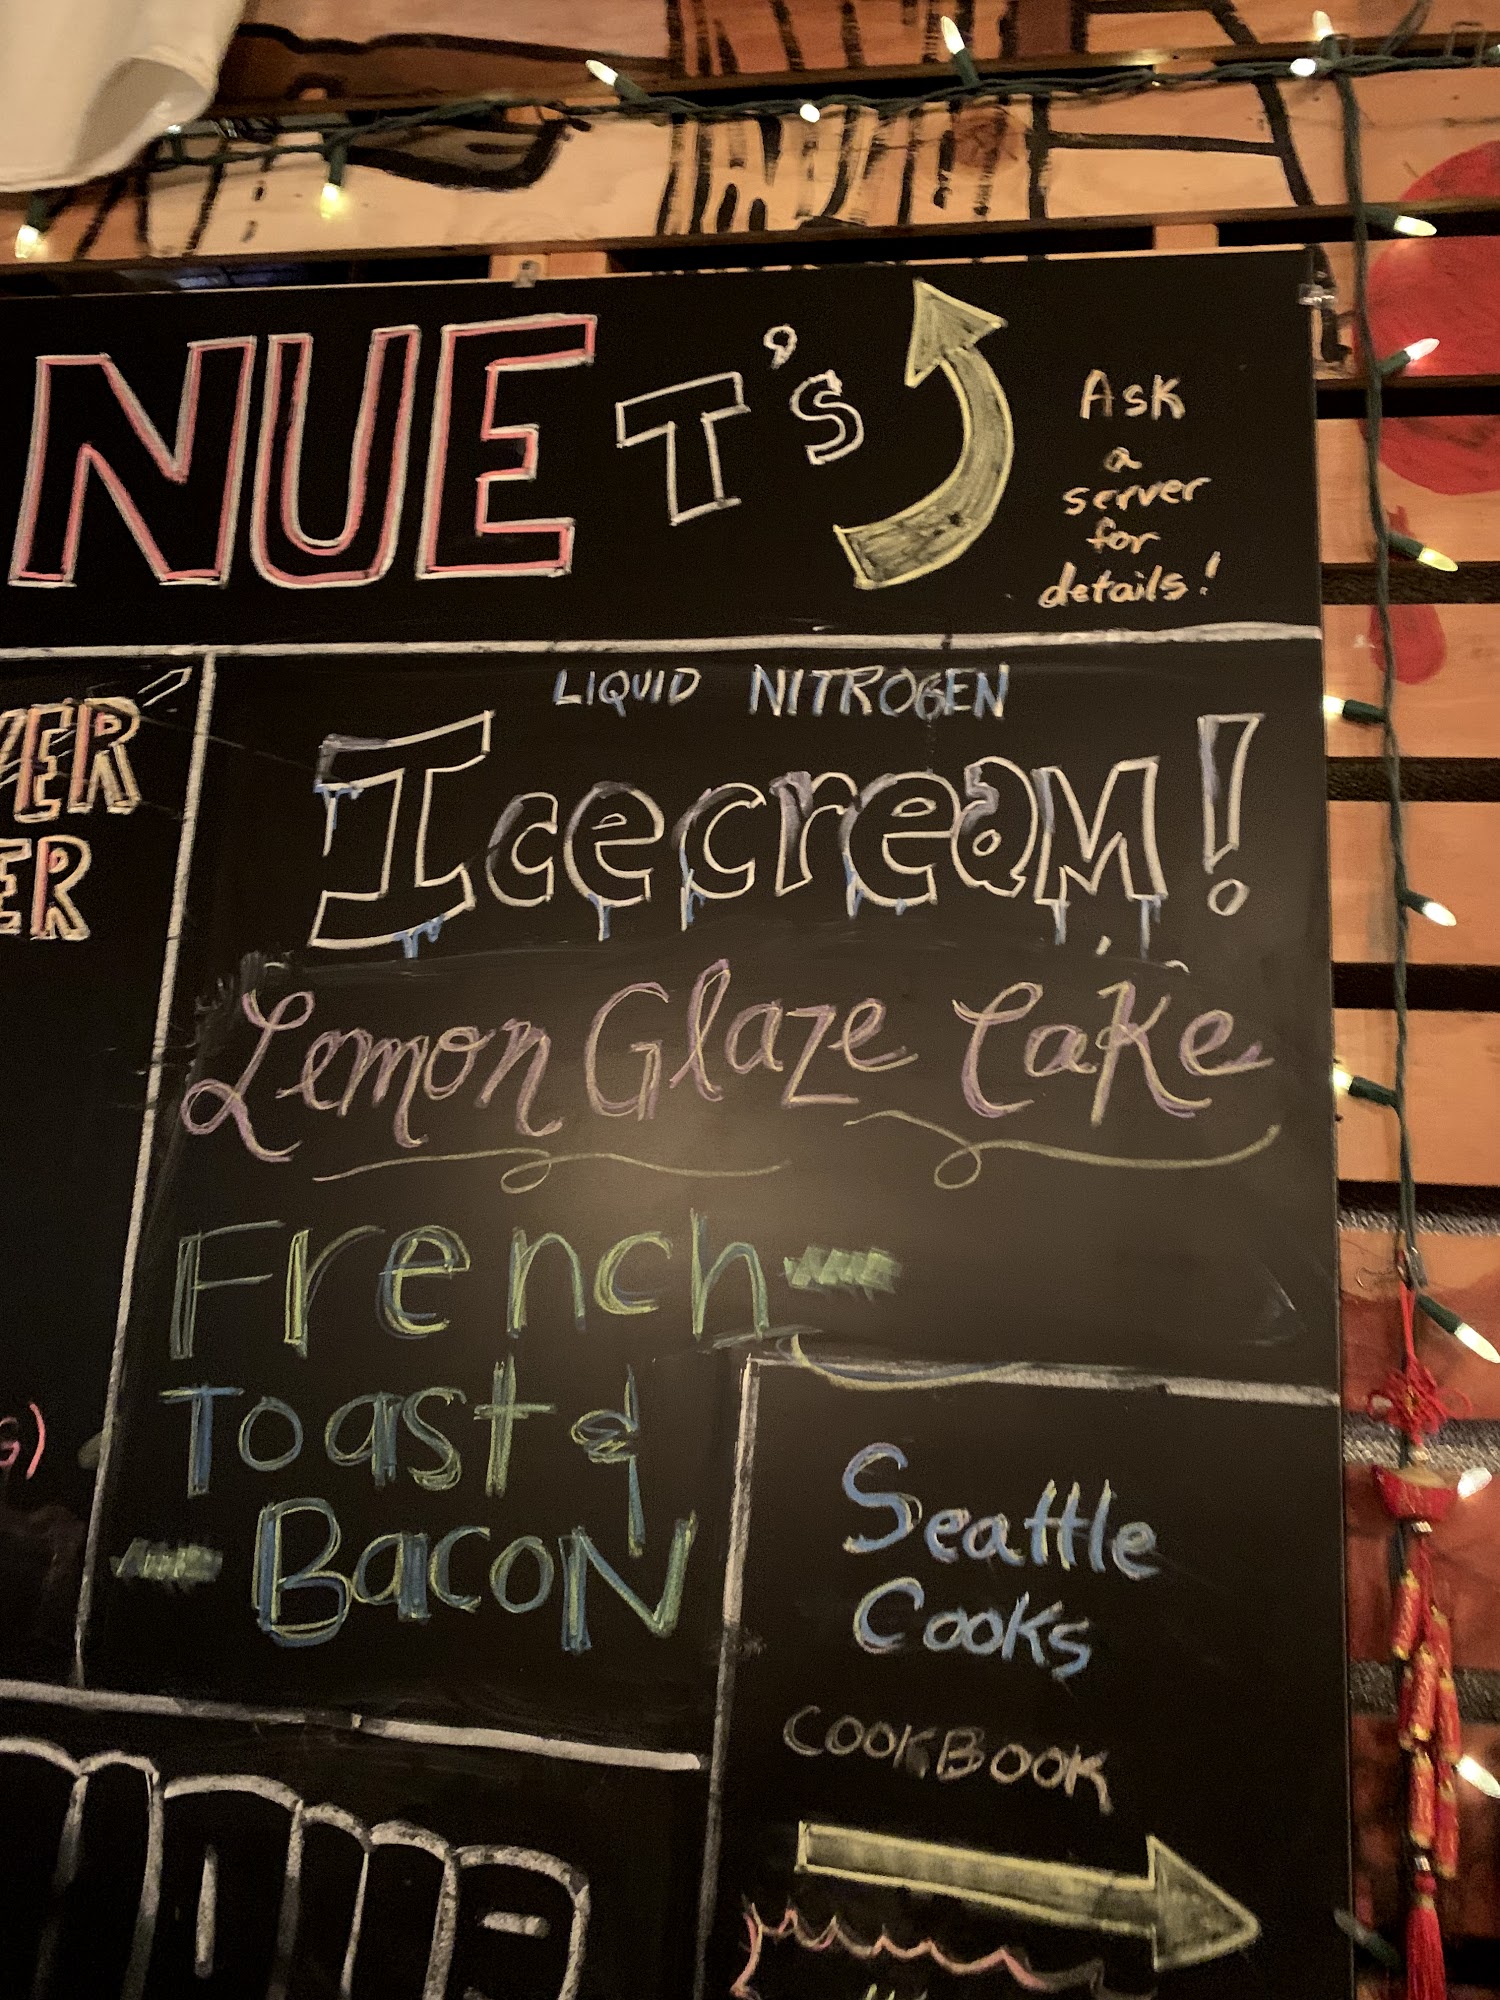 NUE T's
Ask
a
server
for
details!
LIQUID NITROGEN
Icecream!
Lemon Glaze Cake
French-
Toast &
-Bacon
Seattle
Cooks
COOKBOOK